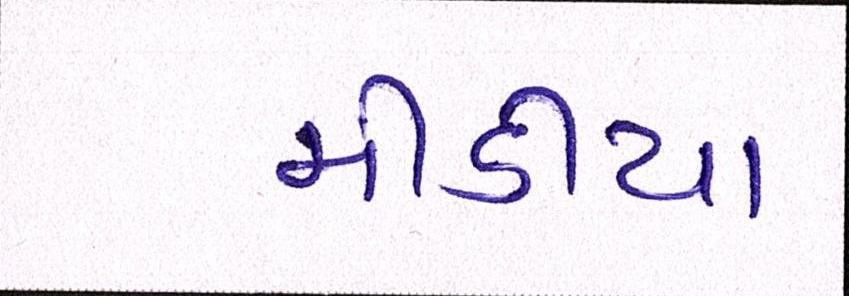 મીડીયા